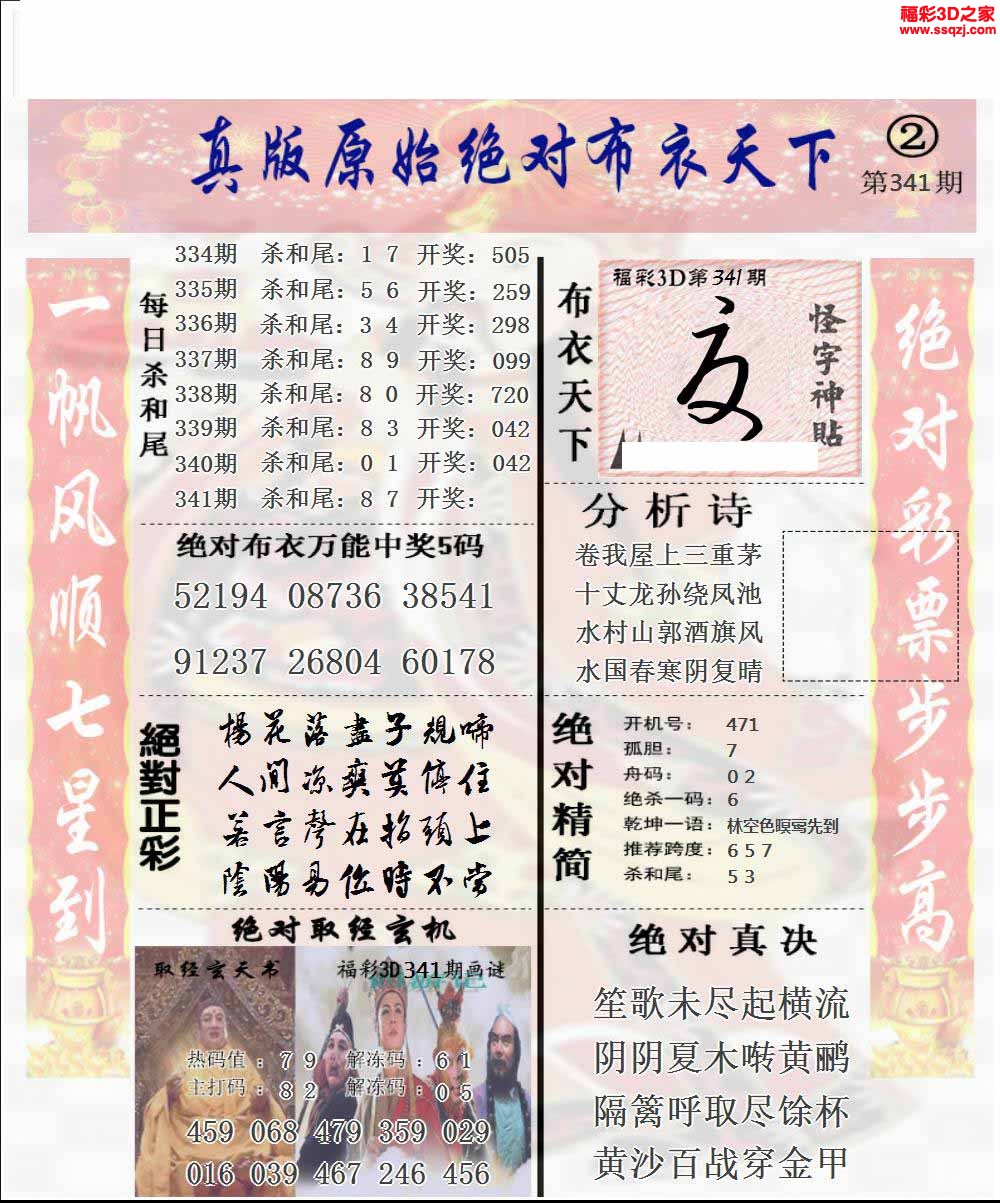 福彩3D之家
www.ssqzj.com
真版原始绝对布衣天下
②
第341期
一帆风顺七星到
绝对彩票步步高
每日杀和尾
334期 杀和尾：1 7 开奖：505
335期 杀和尾：5 6 开奖：259
336期 杀和尾：3 4 开奖：298
337期 杀和尾：8 9 开奖：099
338期 杀和尾：8 0 开奖：720
339期 杀和尾：8 3 开奖：042
340期 杀和尾：0 1 开奖：042
341期 杀和尾：8 7 开奖：
绝对布衣万能中奖5码
52194 08736 38541
91237 26804 60178
絕對正彩
楊花落盡子規啼
人间凉爽莫停住
若言聲在指頭上
陰陽易位時不常
绝对取经玄机
取经玄天书
福彩3D341期画谜
热码值：7 9 解冻码：6 1
主打码：8 2 解冻码：0 5
459 068 479 359 029
016 039 467 246 456
布衣天下
福彩3D第341期
怪字神貼
分析诗
卷我屋上三重茅
十丈龙孙绕凤池
水村山郭酒旗风
水国春寒阴复晴
绝对精简
开机号： 471
孤胆： 7
舟码： 0 2
绝杀一码：6
乾坤一语：林空色暝莺先到
推荐跨度：6 5 7
杀和尾： 5 3
绝对真决
笙歌未尽起横流
阴阴夏木啭黄鹂
隔篱呼取尽馀杯
黄沙百战穿金甲